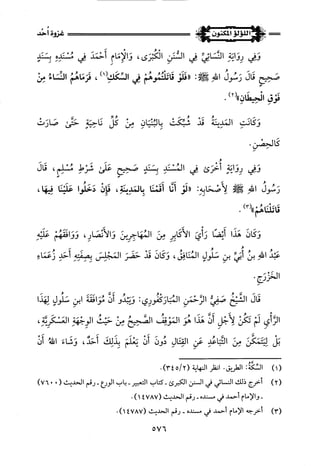 اللؤلؤ المكنون
غزوة أحد
وَفِي رِوَايَةِ النَّسَائِيِّ فِي السُّنَنِ الْكُبْرَى، وَالإِمَامِ أَحْمَدَ فِي مُسْنَدِهِ بِسَنَدٍ
صَحِيحٍ قَالَ رَسُولُ اللهِ ﷺ: «فَلَوْ قَاتَلْتُمُوهُمْ فِي السِّكَكِ(١)، فَرَمَاهُمُ النِّسَاءُ مِنْ
فَوْقِ الْحِيطَانِ»(٢).
وَكَانَتِ المَدِينَةُ قَدْ شُبِّكَتْ بِالبُنْيَانِ مِنْ كُلِّ نَاحِيَةٍ حَتَّى صَارَتْ
كَالحِصْنِ.
وَفِي رِوَايَةٍ أُخْرَى فِي المُسْنَدِ بِسَنَدٍ صَحِيحٍ عَلَى شَرْطِ مُسْلِمٍ، قَالَ
رَسُولُ اللهِ ﷺ لِأَصْحَابِهِ: «لَوْ أَنَّا أَقَمْنَا بِالمَدِينَةِ، فَإِنْ دَخَلُوا عَلَيْنَا فِيهَا،
قَاتَلْنَاهُمْ»(٣).
وَكَانَ هَذَا أَيْضًا رَأْيَ الأَكَابِرِ مِنَ المُهَاجِرِينَ وَالأَنْصَارِ، وَوَافَقَهُمْ عَلَيْهِ
عَبْدُ اللهِ بنُ أُبَيِّ بنِ سَلُولٍ المُنَافِقُ، وَكَانَ قَدْ حَضَرَ المَجْلِسَ بِصِفَتِهِ أَحَدِ زُعَمَاءِ
الخَزْرَجِ.
قَالَ الشَّيْخُ صَفِيُّ الرَّحْمَنِ المُبَارَكْفُورِي: وَيَبْدُو أَنَّ مُوَافَقَةَ ابنِ سَلُولٍ لِهَذَا
الرَّأْيِ لَمْ تَكُنْ لِأَجْلِ أَنَّ هَذَا هُوَ المَوْقِفُ الصَّحِيحُ مِنْ حَيْثُ الوِجْهَةِ العَسْكَرِيَّةِ،
بَلْ لِيَتَمَكَّنَ مِنَ التَّبَاعُدِ عَنِ القِتَالِ دُونَ أَنْ يَعْلَمَ بِذَلِكَ أَحَدٌ، وَشَاءَ اللهُ أَنْ
(١) السِّكَّةُ: الطريق. انظر النهاية (٣٤٥/٢).
(٢) أخرج ذلك النسائي في السنن الكبرى ـ كتاب التعبير ـ باب الورع ـ رقم الحديث (٧٦٠٠)
ـ والإمام أحمد في مسنده ـ رقم الحديث (١٤٧٨٧).
(٣) أخرجه الإمام أحمد في مسنده ـ رقم الحديث (١٤٧٨٧).
٥٧٦